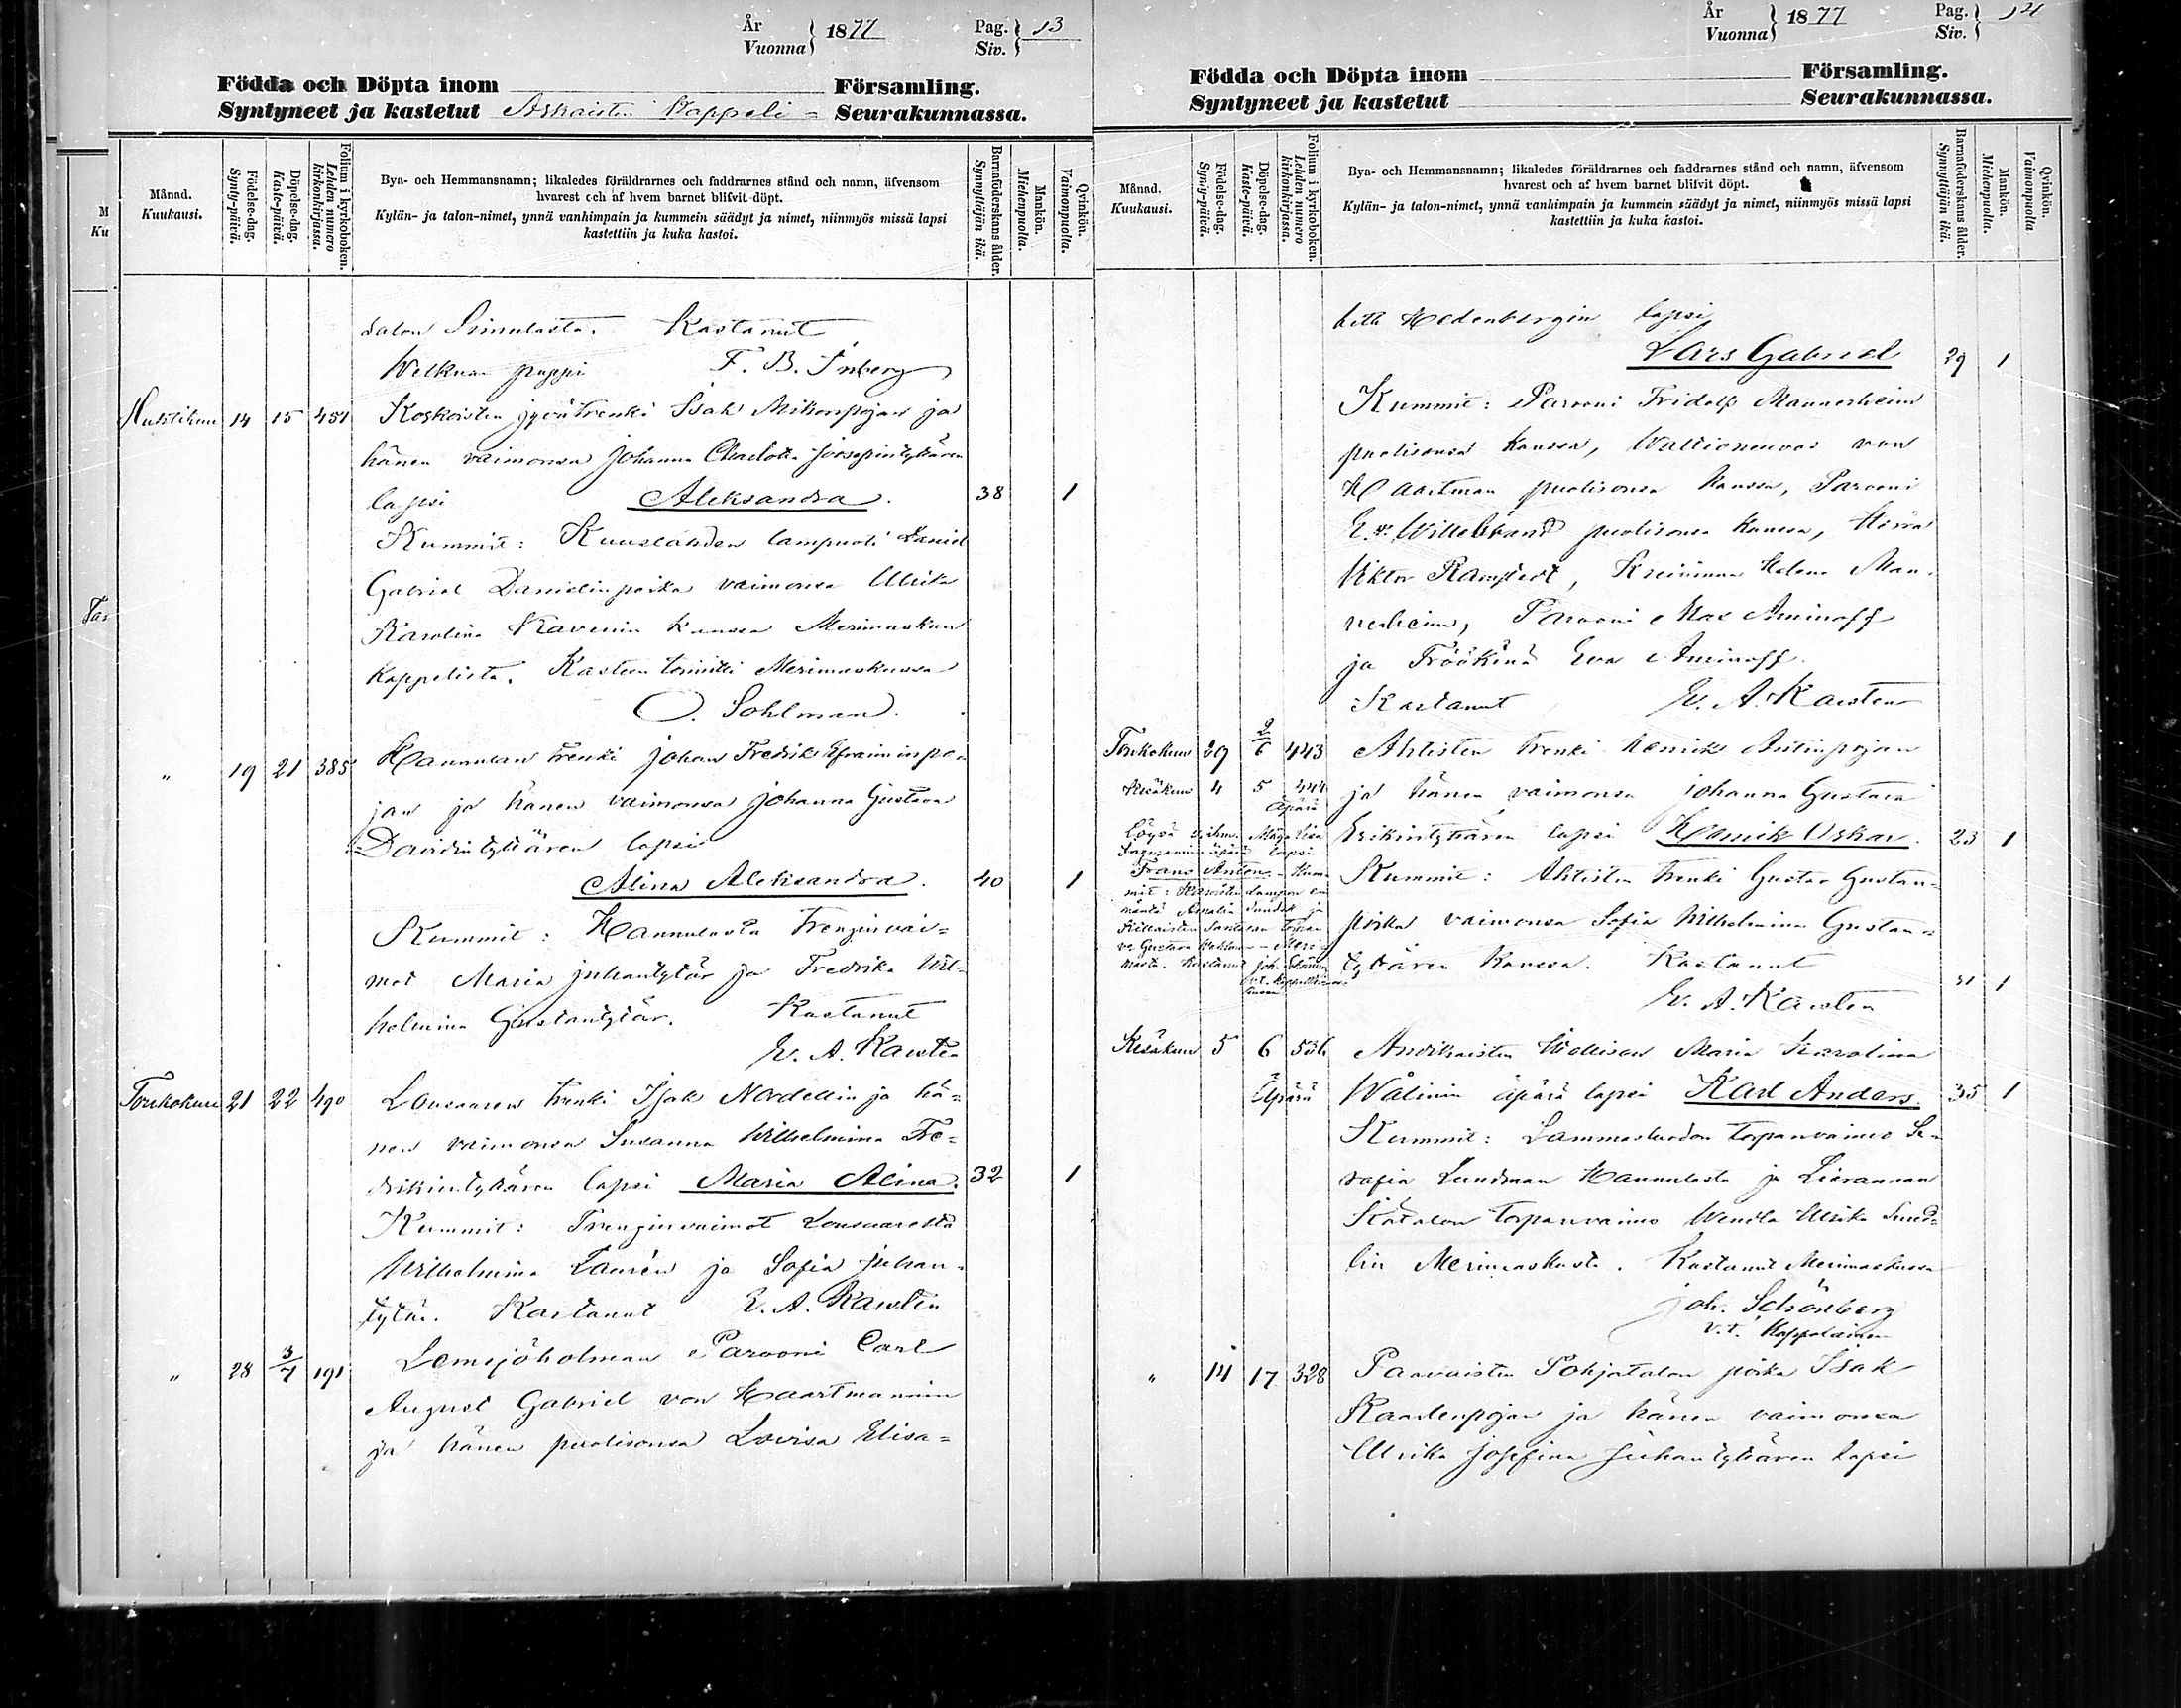 År
Vuonna
1877
Pag.
Siv.
13
Födda och Döpta inom Församling.
Syntyneet ja kastetut Askaisten Kappeli= Seurakunnassa.
Månad.
Kuukausi.
Födelse-dag.
Synty-päivä.
Döpelse-dag.
Kaste-päivä.
Folium i kyrkoboken.
Lehden numero kirkonkirjassa.
Bya- och Hemmansnamn; likaledes föräldrarnes och faddrarnes stånd och namn, äfvensom
hvarest och af hvem barnet blifvit döpt.
Kylän- ja talon-nimet, ynnä vanhimpain ja kummein säädyt ja nimet, niinmyös missä lapsi
kastettiin ja kuka kastoi.
Barnaföderskans ålder.
Synnyttäjän ikä.
Mankön.
Miehenpuolia.
Qvinkön.
Vaimonpuolia.
talon Kastanut
Welkuan pappi F. B. Inberg
Huhtikuu 14 15 451 Koskoisten Isak Mikonpojan ja
hänen vaimonsa Johanna Charlotta Joosepintyttären
lapsi Aleksandra. 38 1
Kummit: Kuuslahden lampuoti Daniel
Gabriel Danielinpoika vaimonsa Ulrika
Karolina kanssa Merimaskun
kappelista. Kasteen toimitti Merimaskussa
O. Sohlman.
" 19 21 385 Hannulan trenki Johan Fredrik Efraiminpo=
jan ja hänen vaimonsa Johanna Gustava
Davidintyttären lapsi
Alina Aleksandra. 40 1
Kummit: Hannulasta trenginvai=
mot Maria Juhantytär ja Fredrika Wil=
helmina Gustantytär. Kastanut
E. A. Karsten
Toukokuu 21 22 490 Lonsaaren trenki Isak Nordellin ja hä=
nen vaimonsa Susanna Wilhelmina Fre=
drikintyttären lapsi Maria Alina. 32 1
Kummit: Trenginvaimot Lonsaaresta
Wilhelmina Laurén ja Sofia Juhan=
tytär. Kastanut E. A. Karsten
" 28 3/7 191 Lemsjöholman Parooni Carl
August Gabriel von Haartmannin
ja hänen puolisonsa Lovisa Elisa=
År
Vuonna
1877
Pag.
Siv.
14
Födda och Döpta inom Församling.
Syntyneet ja kastetut Seurakunnassa.
Månad.
Kuukausi.
Födelse-dag.
Synty-päivä.
Döpelse-dag.
Kaste-päivä.
Folium i kyrkoboken.
Lehden numero kirkonkirjassa.
Bya- och Hemmansnamn; likaledes föräldrarnes och faddrarnes stånd och namn, äfvensom
hvarest och af hvem barnet blifvit döpt.
Kylän- ja talon-nimet, ynnä vanhimpain ja kummein säädyt ja nimet, niinmyös missä lapsi
kastettiin ja kuka kastoi.
Barnaföderskans ålder.
Synnyttäjän ikä.
Mankön.
Miehenpuolia.
Qvinkön.
Vaimonpuolia
beth Hedenbergin lapsi
Lars Gabriel 29 1
Kummit: Parooni Fridolf Mannerheim
puolisonsa kanssa, Waltioneuvos von
Haartman puolisonsa kanssa, Parooni
E. v. Willebrand puolisonsa kanssa, Herra
Viktor Ramstedt, Kreivinna Helena Man=
nerheim, Parooni Max Aminoff
ja Fröökinä Eva Aminoff.
Kastanut E. A. Karsten
Toukokuu 29 2/6 443 Ahtisten trenki Henrik Antinpojan
Kesäkuu 4 5 444 ja hänen vaimonsa Johanna Gustava
äpärä
Erikintyttären lapsi Henrik Oskar. 23 1
Frans Anton.
Kummit: Ahtisten trenki Gustav Gustan=
poika vaimonsa Sofia Wilhelmina Gustan=
tyttären kanssa. Kastanut
31 1
E. A. Karsten
Kesäkuu 5 6 556 Maria Karolina
Äpärä Wålinin äpärä lapsi Karl Anders. 35 1
Kummit: Lammasluodon torpanvaimo Se=
rafia Lundman Hannulasta ja
torpanvaimo Wendla Ulrika Sund=
lin Merimaskusta. Kastanut Merimaskussa
Joh. Schönberg
v.t. Kappalainen
" 14 17 328 Parvaisten Pohjatalon poika Isak
Kaarlenpojan ja hänen vaimonsa
Ulrika Josefina Juhantyttären lapsi